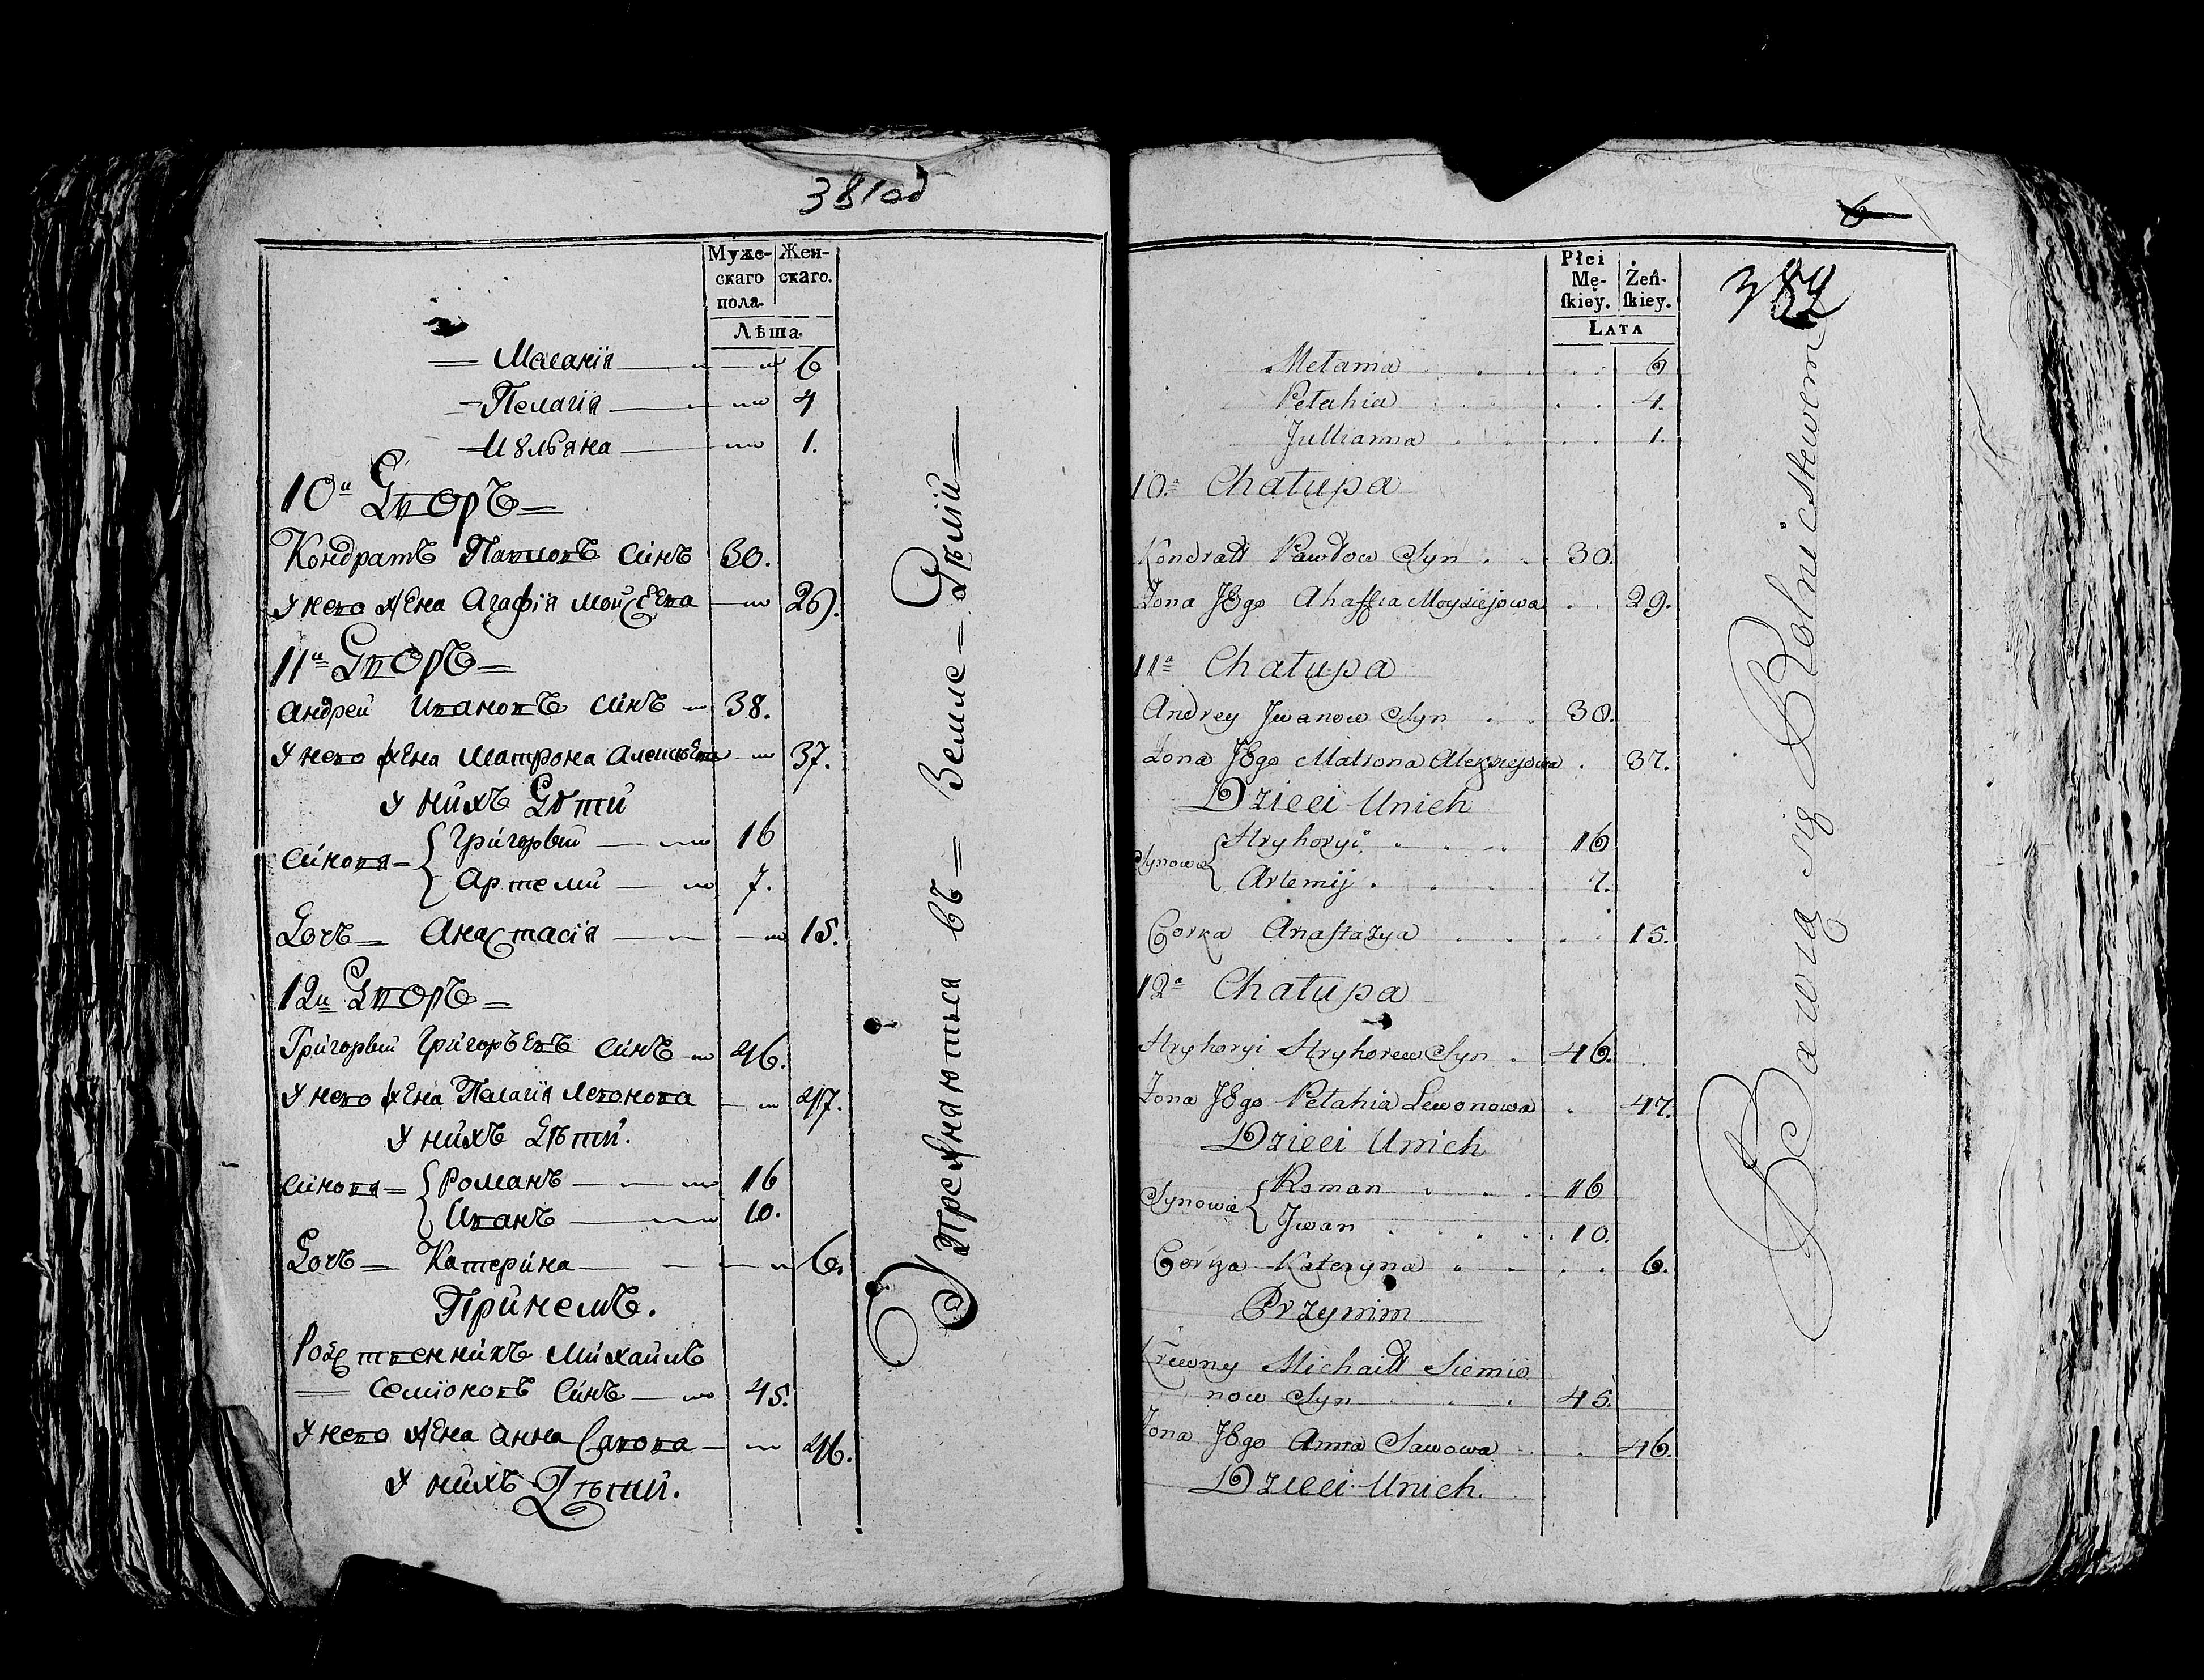 381об
Муже-
скаго
пола.
Жен-
скаго.
Лѣта.
= Маланія 6
= Пелагія 4
= Иульяна 1.
10й Дворъ =
Кондратъ Павловъ Синъ 30.
У него жена Агафія Мойсеева 29.
11й Дворъ =
Андрей Ивановъ Синъ 38.
У него жена Матрона Алексѣева 37.
У нихъ Дѣти
Синовя = { Григорьій 16
Артемій 7.
Дочь = Анастасія 15.
12й Дворъ =
Григорьій Григорьевъ Синъ 46.
У него жена Пелагія Левонова 47.
У нихъ Дѣти.
Синовя = { Романъ 16
Иванъ 10.
Дочь = Катерина 6.
При немъ.
Родственникъ Михайлъ
Семіоновъ Синъ 45.
У него жена Анна Савова 46.
У нихъ Дѣти.
Упражняються въ = Земле = Дѣліи
6
382
Płci
Mę-
ſkiey.
Żeń-
ſkiey.
LATA
Mełania 6
Pełahia 4.
Jullianna 1.
10ª Chałupa
Kondratt Pawłow Syn 30.
Żona JEgo Ahaffia Moysiejowa 29.
11ª Chałupa
Andrey Jwanow Syn 38.
Żona JEgo Matrona Alexiejowa 37.
Dzieci Unich
Synowie { Hryhoryi 16
Artemij 7.
Corka Anaſtazya 15.
12ª Chałupa
Hryhoryi Hryhorew Syn 46.
Żona JEgo Pełahia Lewonowa 47.
Dzieci Unich
Synowie { Roman 16
Jwan 10.
Corka Kateryna 6.
Przynim
Krewny Michaiłł Siemio
now Syn 45.
Żona JEgo Anna Sawowa 46.
Dzieci Unich.
Bawią się Rolnictwem